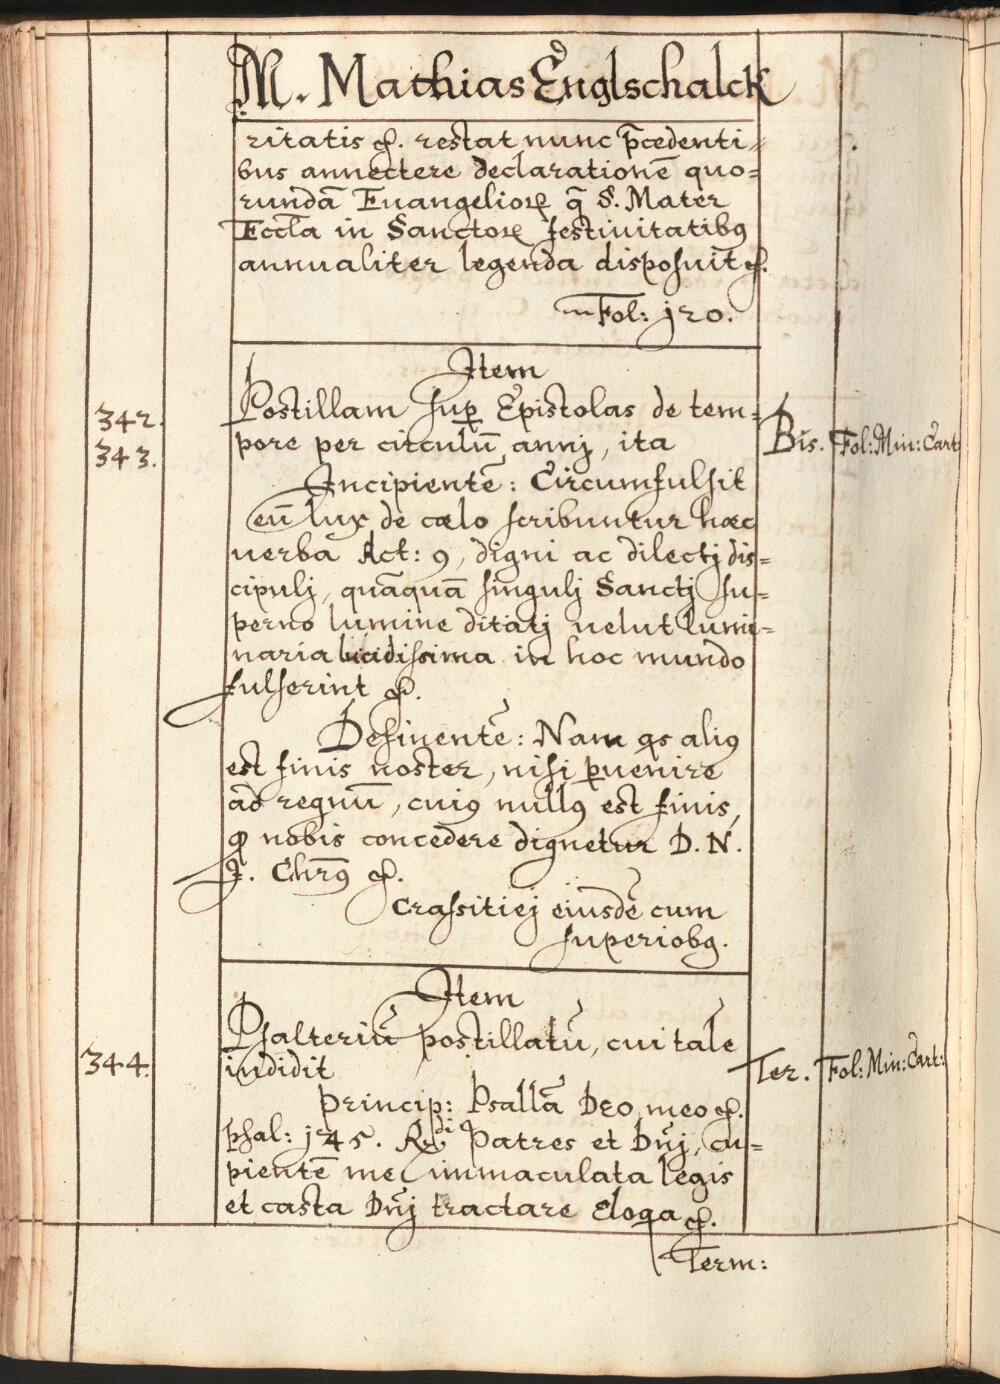 M. Mathias Englschalck
ritatis &. restat nunc p̄cedenti=
bus annectere declarationē quo=
rundā Euangelioꝝ q̄ S. Mater
Eccl̄a in Sanctoꝝ festiuitatibꝯ
annualiter legenda disposuit &.
Fol: j20.
Item
342.
343.
Postillam sup̱ Epistolas de tem=
pore per circulū annj, ita
Bis. Fol: Min: Cart:
Incipientē: Circumfulsit
eū lux de cælo scribuntur hæc
uerba Act: 9, digni ac dilectj dis=
cipulj, quāquā singulj Sanctj su=
perno lumine ditatj uelut lumi=
naria lucidissima in hoc mundo
fulserint &.
Desinentē: Nam q̱s aliꝯ
est finis noster, nisi ꝑuenire
ad regnū, cuiꝯ nullꝯ est finis,
ꝙ nobis concedere dignetur D. N.
J. Chrꝯ̄ &.
Crassitiej eiusdē cum
superiobꝯ.
Item
344.
Psalteriū postillatū, cui tale
indidit
Ter. Fol: Min: Cart:
princip: Psallā Deo meo &.
psal: j45. Rdi Patres et Dn̄j, cu=
pientē me immaculata legis
et casta Dn̄j tractare eloqa &.
Term: